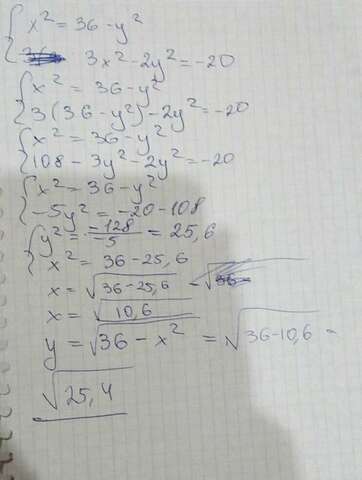 { x² = 36 - y²
3x² - 2y² = -20
{ x² = 36 - y²
3(36 - y²) - 2y² = -20
{ x² = 36 - y²
108 - 3y² - 2y² = -20
{ x² = 36 - y²
-5y² = -20 - 108
{ y² = -128/-5 = 25,6
x² = 36 - 25,6
x = √36 - 25,6 =
x = √10,6
y = √36 - x² = √36 - 10,6 =
√25,4